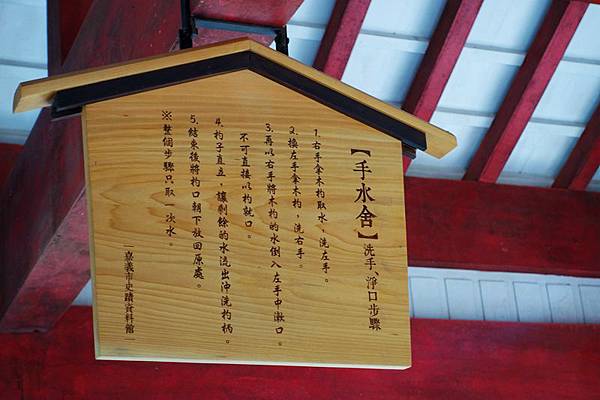 【手水舍】洗手、淨口步驟
1.右手拿木杓取水，洗左手。
2.換左手拿木杓，洗右手。
3.再以右手將木杓的水倒入左手中漱口。
不可直接以杓就口。
4.杓子直立，讓剩餘的水流出沖洗杓柄。
5.結束後將杓口朝下放回原處。
※整個步驟只取一次水。
—嘉義市史蹟資料館—